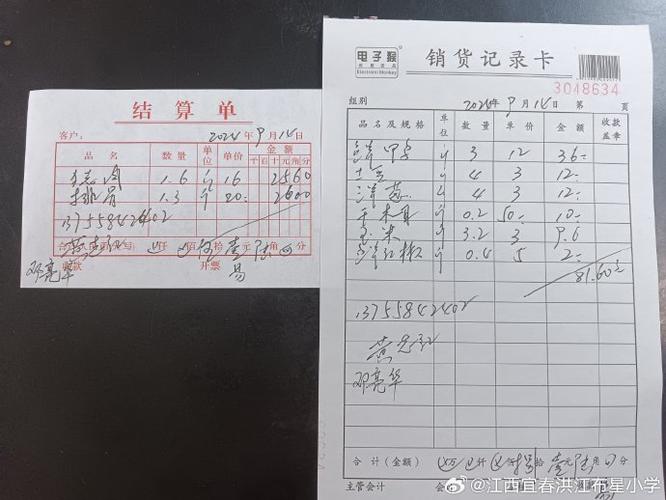 结算单
客户: 2024年9月14日
品名 数量 单位 单价 金额
千百十元角分
猪肉 1.6 斤 16 2560
排骨 1.3 斤 20 2600
13755842402
合计人民币(大写) 仟 佰 拾 元 角 分
收款 开票
邓亮华
电子猴
Electronic Monkey
销货记录卡
3048634
组别 2024年9月14日 第 页
品名及规格 单位 数量 单价 金额 收款盖章
斤 3 12 36
土豆 斤 4 3 12
洋葱 斤 4 3 12
干木耳 斤 0.2 50 10
玉米 斤 3.2 3 9.6
红椒 斤 0.4 5 2
81.60
13755842402
邓亮华
合计(金额) 万 仟 佰 拾 元 角 分
主管会计
@江西宜春洪江布星小学